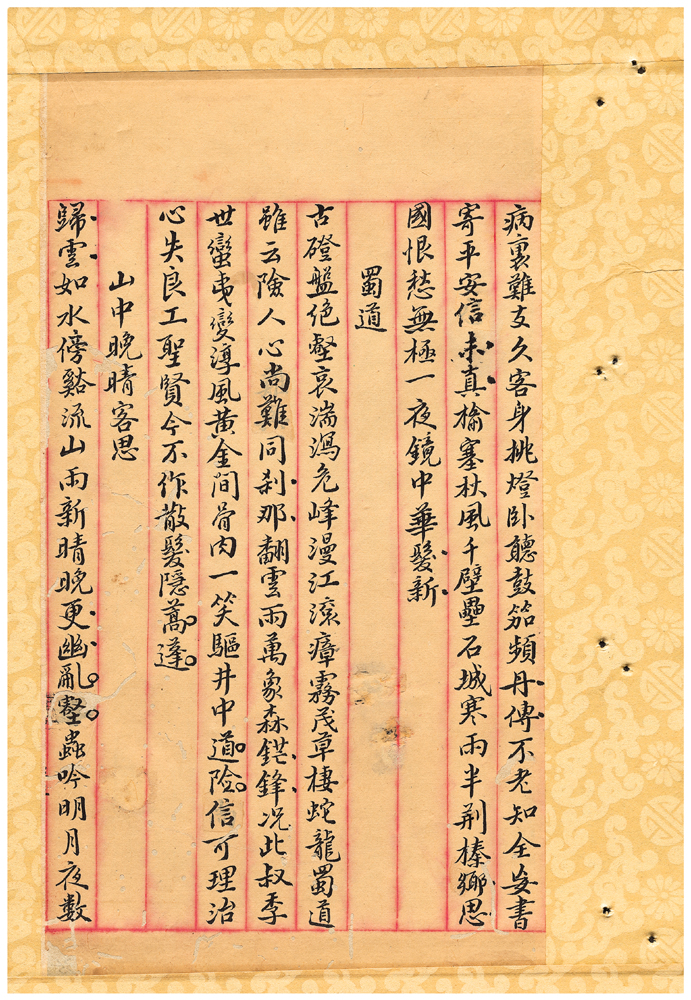 病裏難支久客身挑燈卧聽鼓笳頻丹傳不老知全妄書
寄平安信未真榆塞秋風千壁壘石城寒雨半荆榛鄉思
國恨愁無極一夜鏡中華髮新
蜀道
古磴盤絕壑哀湍瀉危峰漫江滚瘴霧茂草棲蛇龍蜀道
雖云險人心尚難同刹那翻雲雨萬象森鋩鋒况此叔季
世蠻夷變淳風黄金間骨肉一笑驅井中道险信可理治
心失良工聖賢今不作散髮隱蒿蓬
山中晚晴客思
歸雲如水傍谿流山雨新晴晚更幽亂壑蟲吟明月夜數